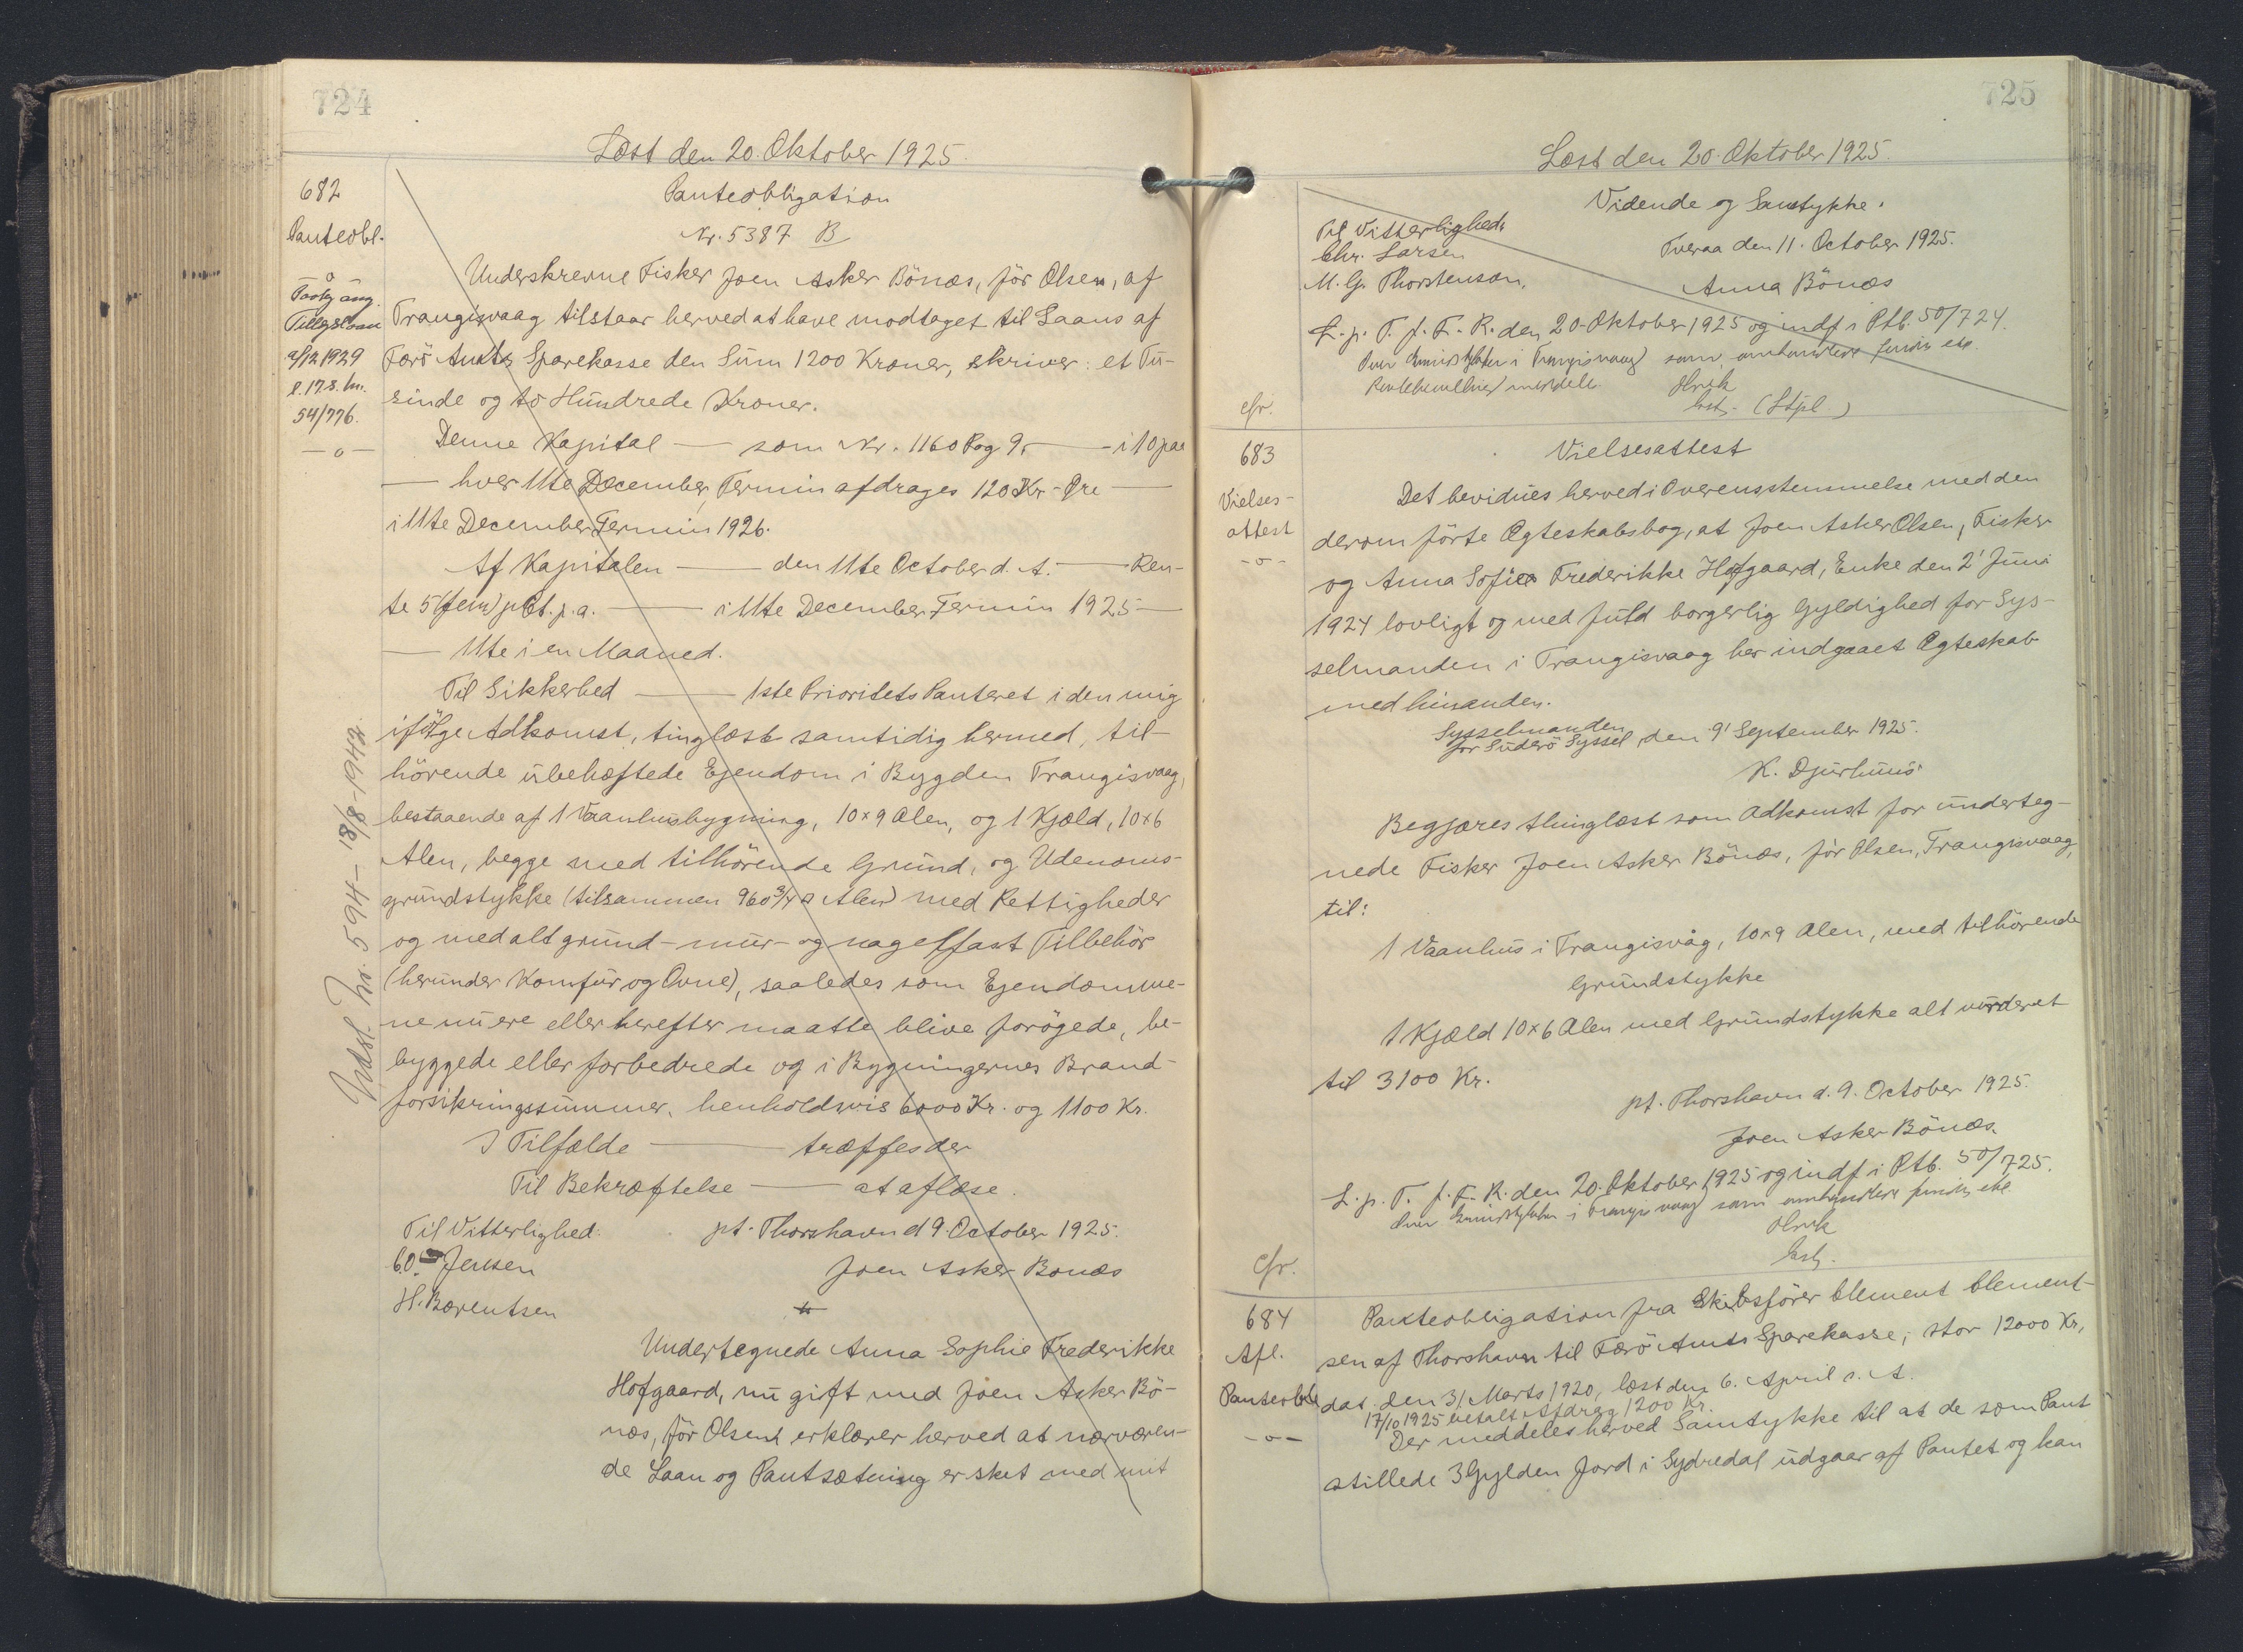 724
Læst den 20. Oktober 1925.
682
Panteobl.
— o —
Paateg ang.
Tillægslaan
2/12 1929
l. 17.s. m.
54/776.
— o —
Indst. Nr. 594 – 18/8-1942.
Panteobligation
Nr. 5387 B
Underskrevne Fisker Joen Asker Bönæs, för Olsen, af
Trangisvaag tilstaar herved at have modtaget til Laans af
Færö Amts Sparekasse den Sum 1200 Kroner, skriver: et Tu-
sinde og to Hundrede Kroner.
Denne Kapital — som Nr. 1160 Pog 9. — i 10 paa
— hver 11te December Termin afdrages 120 Kr - Øre —
i 11te December Termin 1926.
Af Kapitalen — den 11te October d. A. — Ren-
te 5 (fem) pCt. p. a. — i 11te December Termin 1925 —
— 11te i en Maaned.
Til Sikkerhed — 1ste Prioritets Panteret i den mig
ifölge Adkomst, tinglæst samtidig hermed, til-
hörende ubehæftede Ejendom i Bygden Trangisvaag,
bestaaende af 1 Vaanhusbygning, 10 x 9 Alen, og 1 Kjæld, 10 x 6
Alen, begge med tilhörende Grund, og Udenoms-
grundstykke (tilsammen 960 3/4 □ Alen) med Rettigheder
og med alt grund- mur- og nagelfast Tilbehör
(herunder Komfur og Ovne), saaledes som Ejendomme-
ne nu ere eller herefter maatte blive forögede, be-
byggede eller forbedrede og i Bygningernes Brand-
forsikringssummer, henholdsvis 6000 Kr. og 1100 Kr.
I Tilfælde — træffes der
Til Bekræftelse — at aflæse.
Til Vitterlighed: pt. Thorshavn d 9. October 1925.
C.O. Jensen Joen Asker Bönæs
H. Bærentsen
Undertegnede Anna Sophie Frederikke
Hofgaard, nu gift med Joen Asker Bö-
næs, för Olsen, erklærer herved at nærværen-
de Laan og Pantsætning er sket med mit
725
Læst den 20. Oktober 1925.
Vidende og Samtykke.
Til Vitterlighed: Tveraa den 11. October 1925.
Chr. Larsen
M. G. Thorstenson, Anna Bönæs
L. p. T. f. F. R. den 20. Oktober 1925 og indf i Ptb. 50/724.
Cfr.
683
Vielses-
attest
- o -
Vielsesattest
Det bevidnes herved i Overensstemmelse med den
derom förte Ægteskabsbog, at Joen Asker Olsen, Fisker
og Anna Sofie Frederikke Hofgaard, Enke den 2' Juni
1924 lovligt og med fuld borgerlig Gyldighed for Sys-
selmanden i Trangisvaag her indgaaet Ægteskab
med hinanden.
Sysselmanden
for Suderö Syssel, den 9' September 1925.
K. Djurhuus
Begjæres thinglæst som Adkomst for underteg-
nede Fisker Joen Asker Bönæs, för Olsen, Trangisvaag,
til:
1 Vaanhus i Trangisvåg, 10x9 Alen, med tilhörende
Grundstykke
1 Kjæld 10 x 6 Alen med Grundstykke alt vurderet
til 3100 Kr.
pt. Thorshavn d. 9. October 1925.
Joen Asker Bönæs.
L. p. T. f. F. R. den 20. Oktober 1925 og indf i Ptb. 50/725.
Cfr.
684
Afl.
Panteobl
- o -
Panteobligation fra Skibsförer Clement Clement-
sen af Thorshavn til Færö Amts Sparekasse, stor 12000 Kr,
dat. den 31 Marts 1920, læst den 6. April s. A.
17/10 1925 betalt Afdrag 1200 Kr.
Der meddeles herved Samtykke til at de som Pant
stillede 3 Gylden Jord i Sydredal udgaar af Pantet og kan